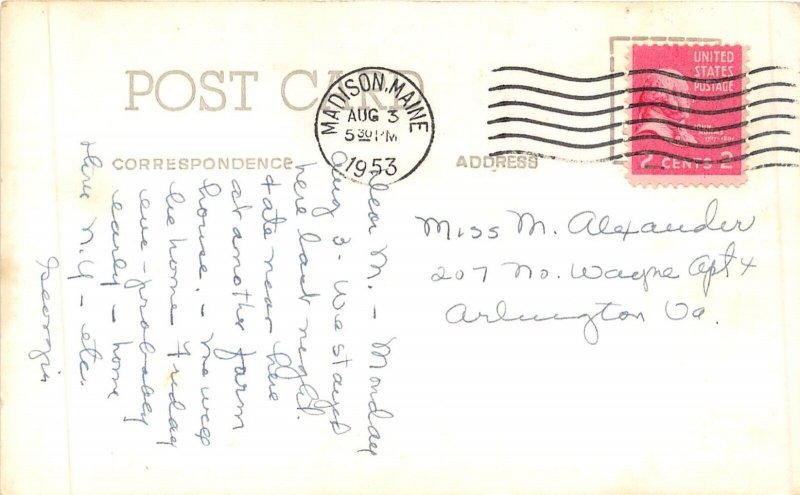 POST CARD
MADISON, MAINE
AUG 3
5 30 PM
1953
UNITED
STATES
POSTAGE
2 CENTS 2
CORRESPONDENCE
ADDRESS
Dear M. - Monday
Aug 3 - We stayed
here last night.
+ ate near here
at another farm
house. -
be home Friday
eve - probably
early - home
thru N.Y - etc.
Georgia
Miss M. Alexander
207 No. Wayne Apt 4
Arlington Va.